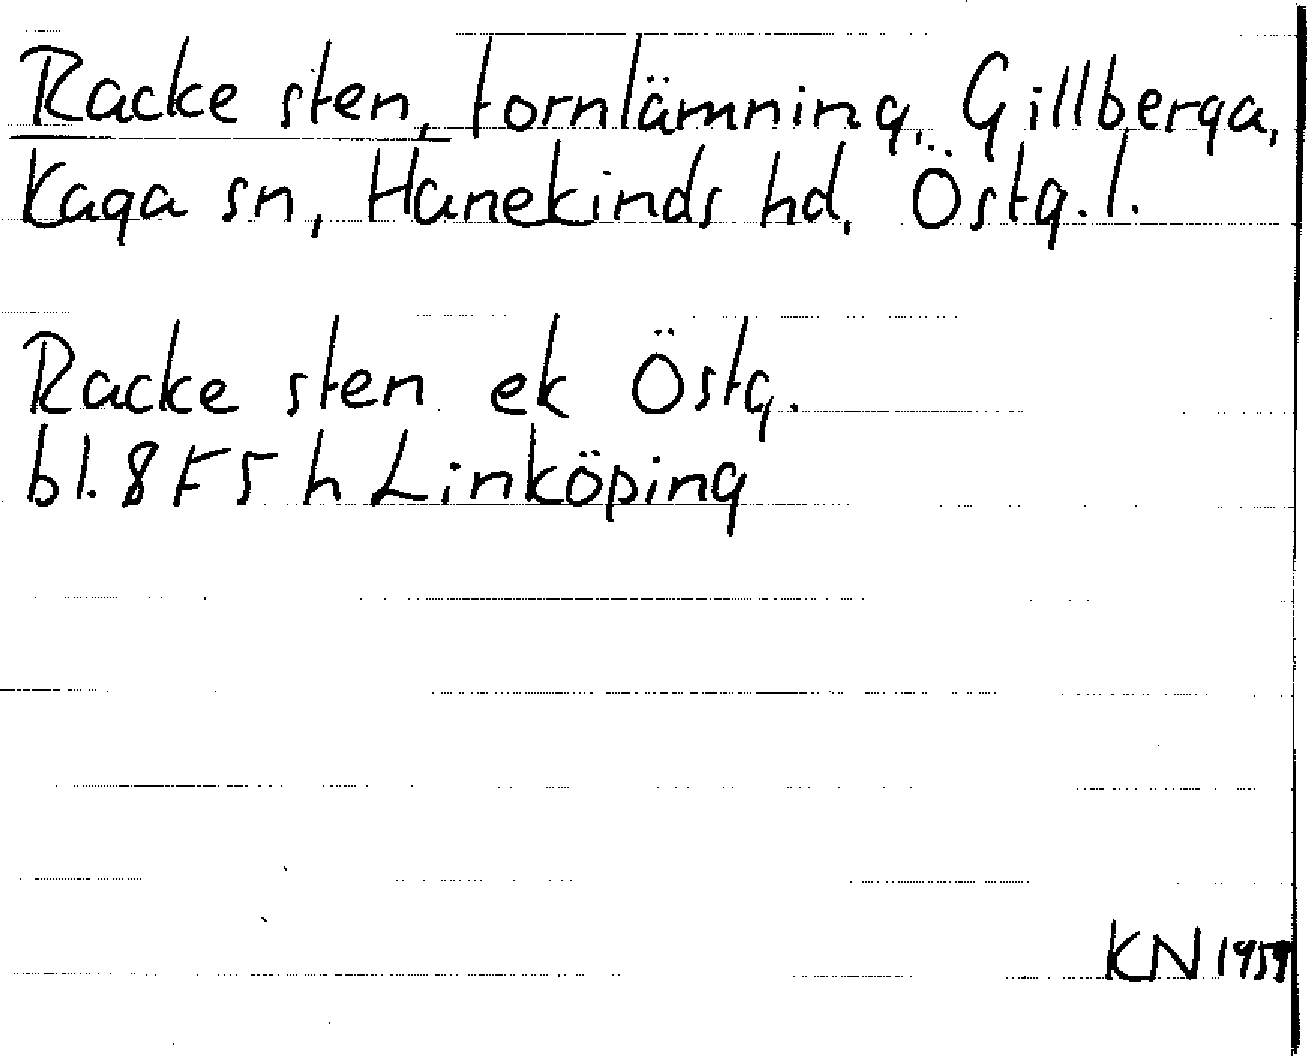 Racke sten, fornlämning, Gillberga,
Kaga sn, Hanekinds hd, Östg. l.
Racke sten ek Östg.
bl. 8 F 5 h Linköping
KN 1959